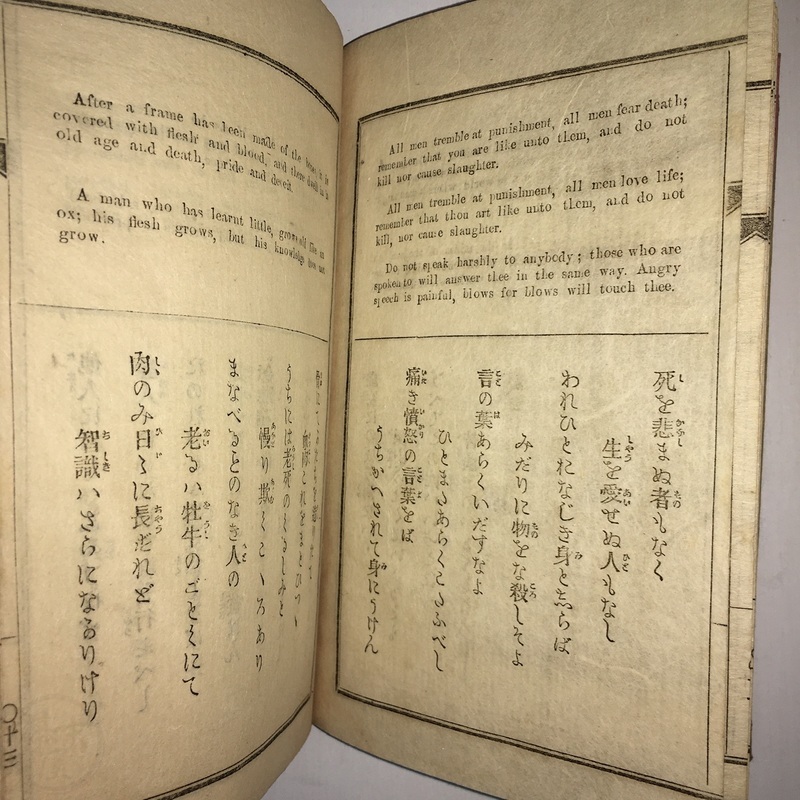 All men tremble at punishment, all men fear death;
remember that you are like unto them, and do not
kill nor cause slaughter.
All men tremble at punishment, all men love life;
remember that thou art like unto them, and do not
kill, nor cause slaughter.
Do not speak harshly to anybody; those who are
spoken to will answer thee in the same way. Angry
speech is painful, blows for blows will touch thee.
死を悲まぬ者もなく
生を愛せぬ人もなし
われひとおなじき身と志らば
みだりに物をな殺しそよ
言の葉あらくいだすなよ
ひとまたあらくこたふべし
痛き憤怒の言葉をば
うちかへされて身にうけん
After a frame has been made of the bones, it is
covered with flesh and blood, and there dwell in it
old age and death, pride and deceit.
A man who has learnt little, grows old like an
ox; his flesh grows, but his knowledge does not
grow.
うちには老死のくるしみと
慢り欺くこゝろあり
まなべることのなき人の
老るハ牡牛のごとくにて
肉のみ日々に長ずれど
智識ハさらになかりけり
〇十三